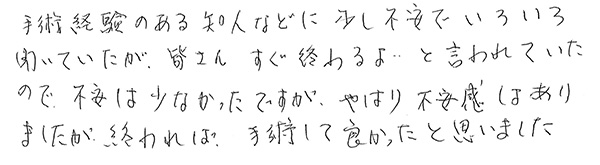 手術経験のある知人などに少し不安でいろいろ
聞いていたが、皆さん すぐ終わるよ‥と言われていた
ので、不安は少なかったですが、やはり不安感はあり
ましたが、終われば、手術して良かったと思いました